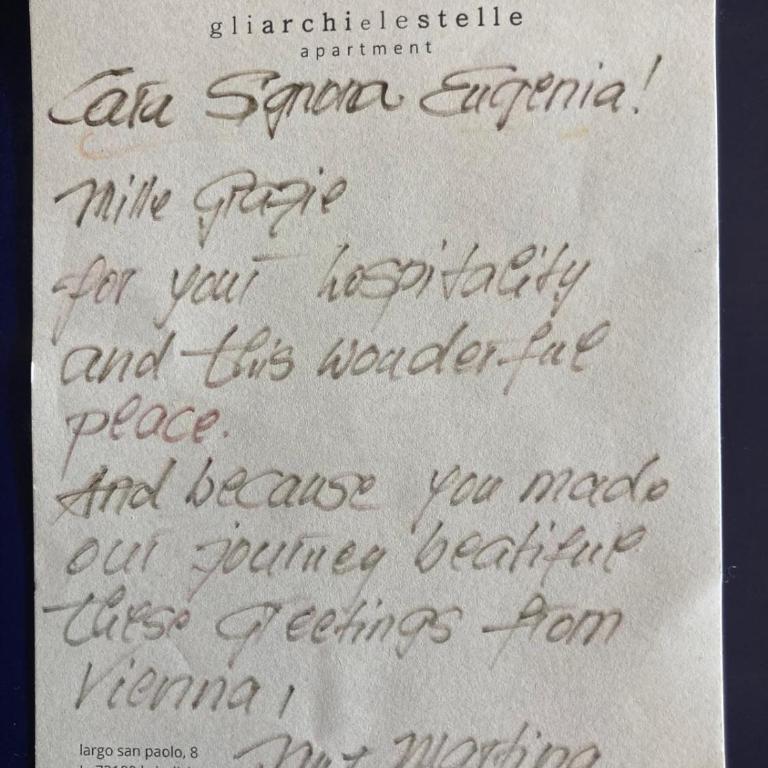 gliarchielestelle
apartment
Cara Signora Eugenia!
Mille Grazie
for your hospitality
and this wonderful
peace.
And because you made
our journey beatiful
these greetings from
Vienna,
largo san paolo, 8
Martina